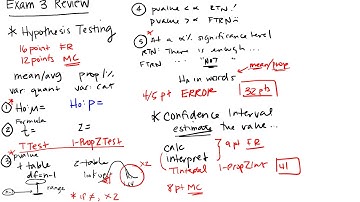 Exam 3 Review
* Hypothesis Testing
16 point FR
12 points MC
mean/avg prop/%
var: quant var: cat
① Ho: μ= Ho: p=
② Formula
t= z=
TTest 1-PropZTest
③ pvalue
t-table z-table
df=n-1
range
x2
* if ≠, x2
④ pvalue < α RTN!
pvalue > α FTRN
⑤ At a α% significance level
RTN: There is enough ...
FTRN "NOT"
Ha in words
mean/prop
4/5 pt ERROR 32 pts
* Confidence Interval
estimate the value...
calc
interpret
9 pt FR
TInterval 1-PropZInt 41
8 pt MC